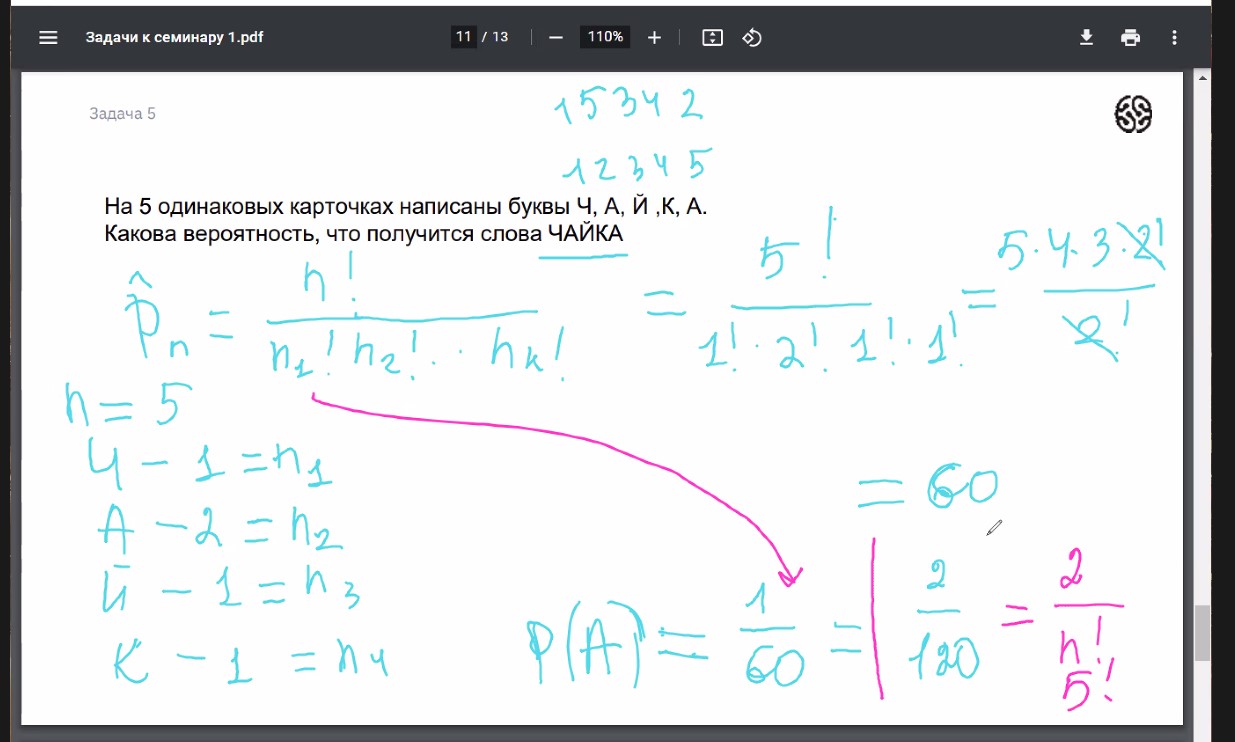 Задачи к семинару 1.pdf
11 / 13
110%
Задача 5
1 5 3 4 2
1 2 3 4 5
На 5 одинаковых карточках написаны буквы Ч, А, Й ,К, А.
Какова вероятность, что получится слова ЧАЙКА
P̂n = n! / (n1! n2! · · nk!) = 5! / (1! · 2! 1! · 1!) = 5 · 4 · 3 · 2! / 2!
n = 5
Ч - 1 = n1
А - 2 = n2
= 60
Й - 1 = n3
К - 1 = n4
P(A) = 1/60 = | 2/120 = 2/n!
5!